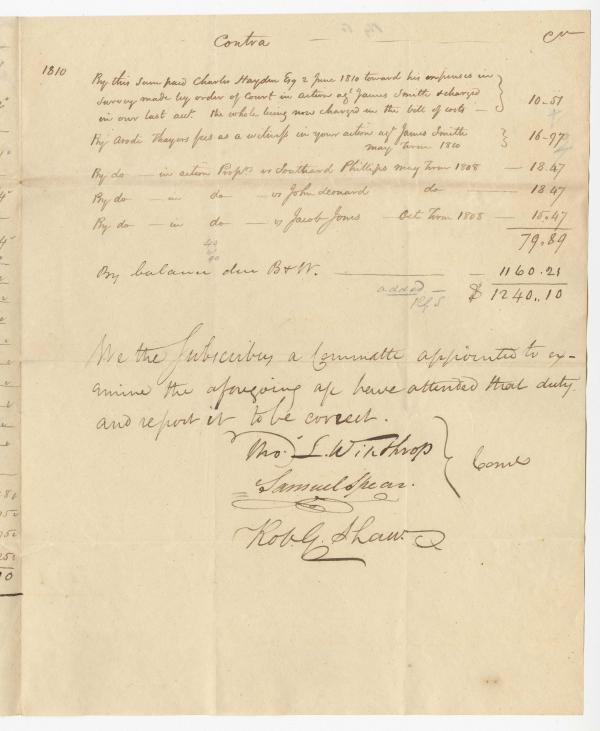 Contra Cr
1810
By this Sum paid Charles Hayden Esq 2 June 1810 toward his expenses in
survey made by order of Court in action agt James Smith & charged
in our last act. the whole being now charged in the bill of costs — 10-51
By Thayers fees as a witness in your action agt James Smith
May Term 1810 16-97
By do — in action Propts vs Southard Phillips May Term 1808 — 18.47
By do — in do — vs John Leonard do — 18 47
By do — in do — vs Jacob Jones — Oct Term 1808 — 15.47
79.89
By balance due B & W. — 1160.21
added —
RGS
$ 1240..10
We the Subscribers a Committe appointed to ex-
amine the aforegoing a/c have attended that duty
and report it to be correct.
Tho. L. Winthrop
Samuel Spear.
Rob. G. Shaw.
Come